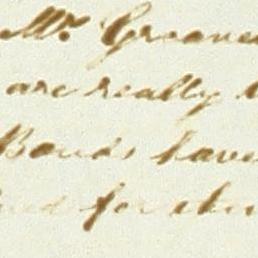 Mr. Greaves
are really
Bonds have
for